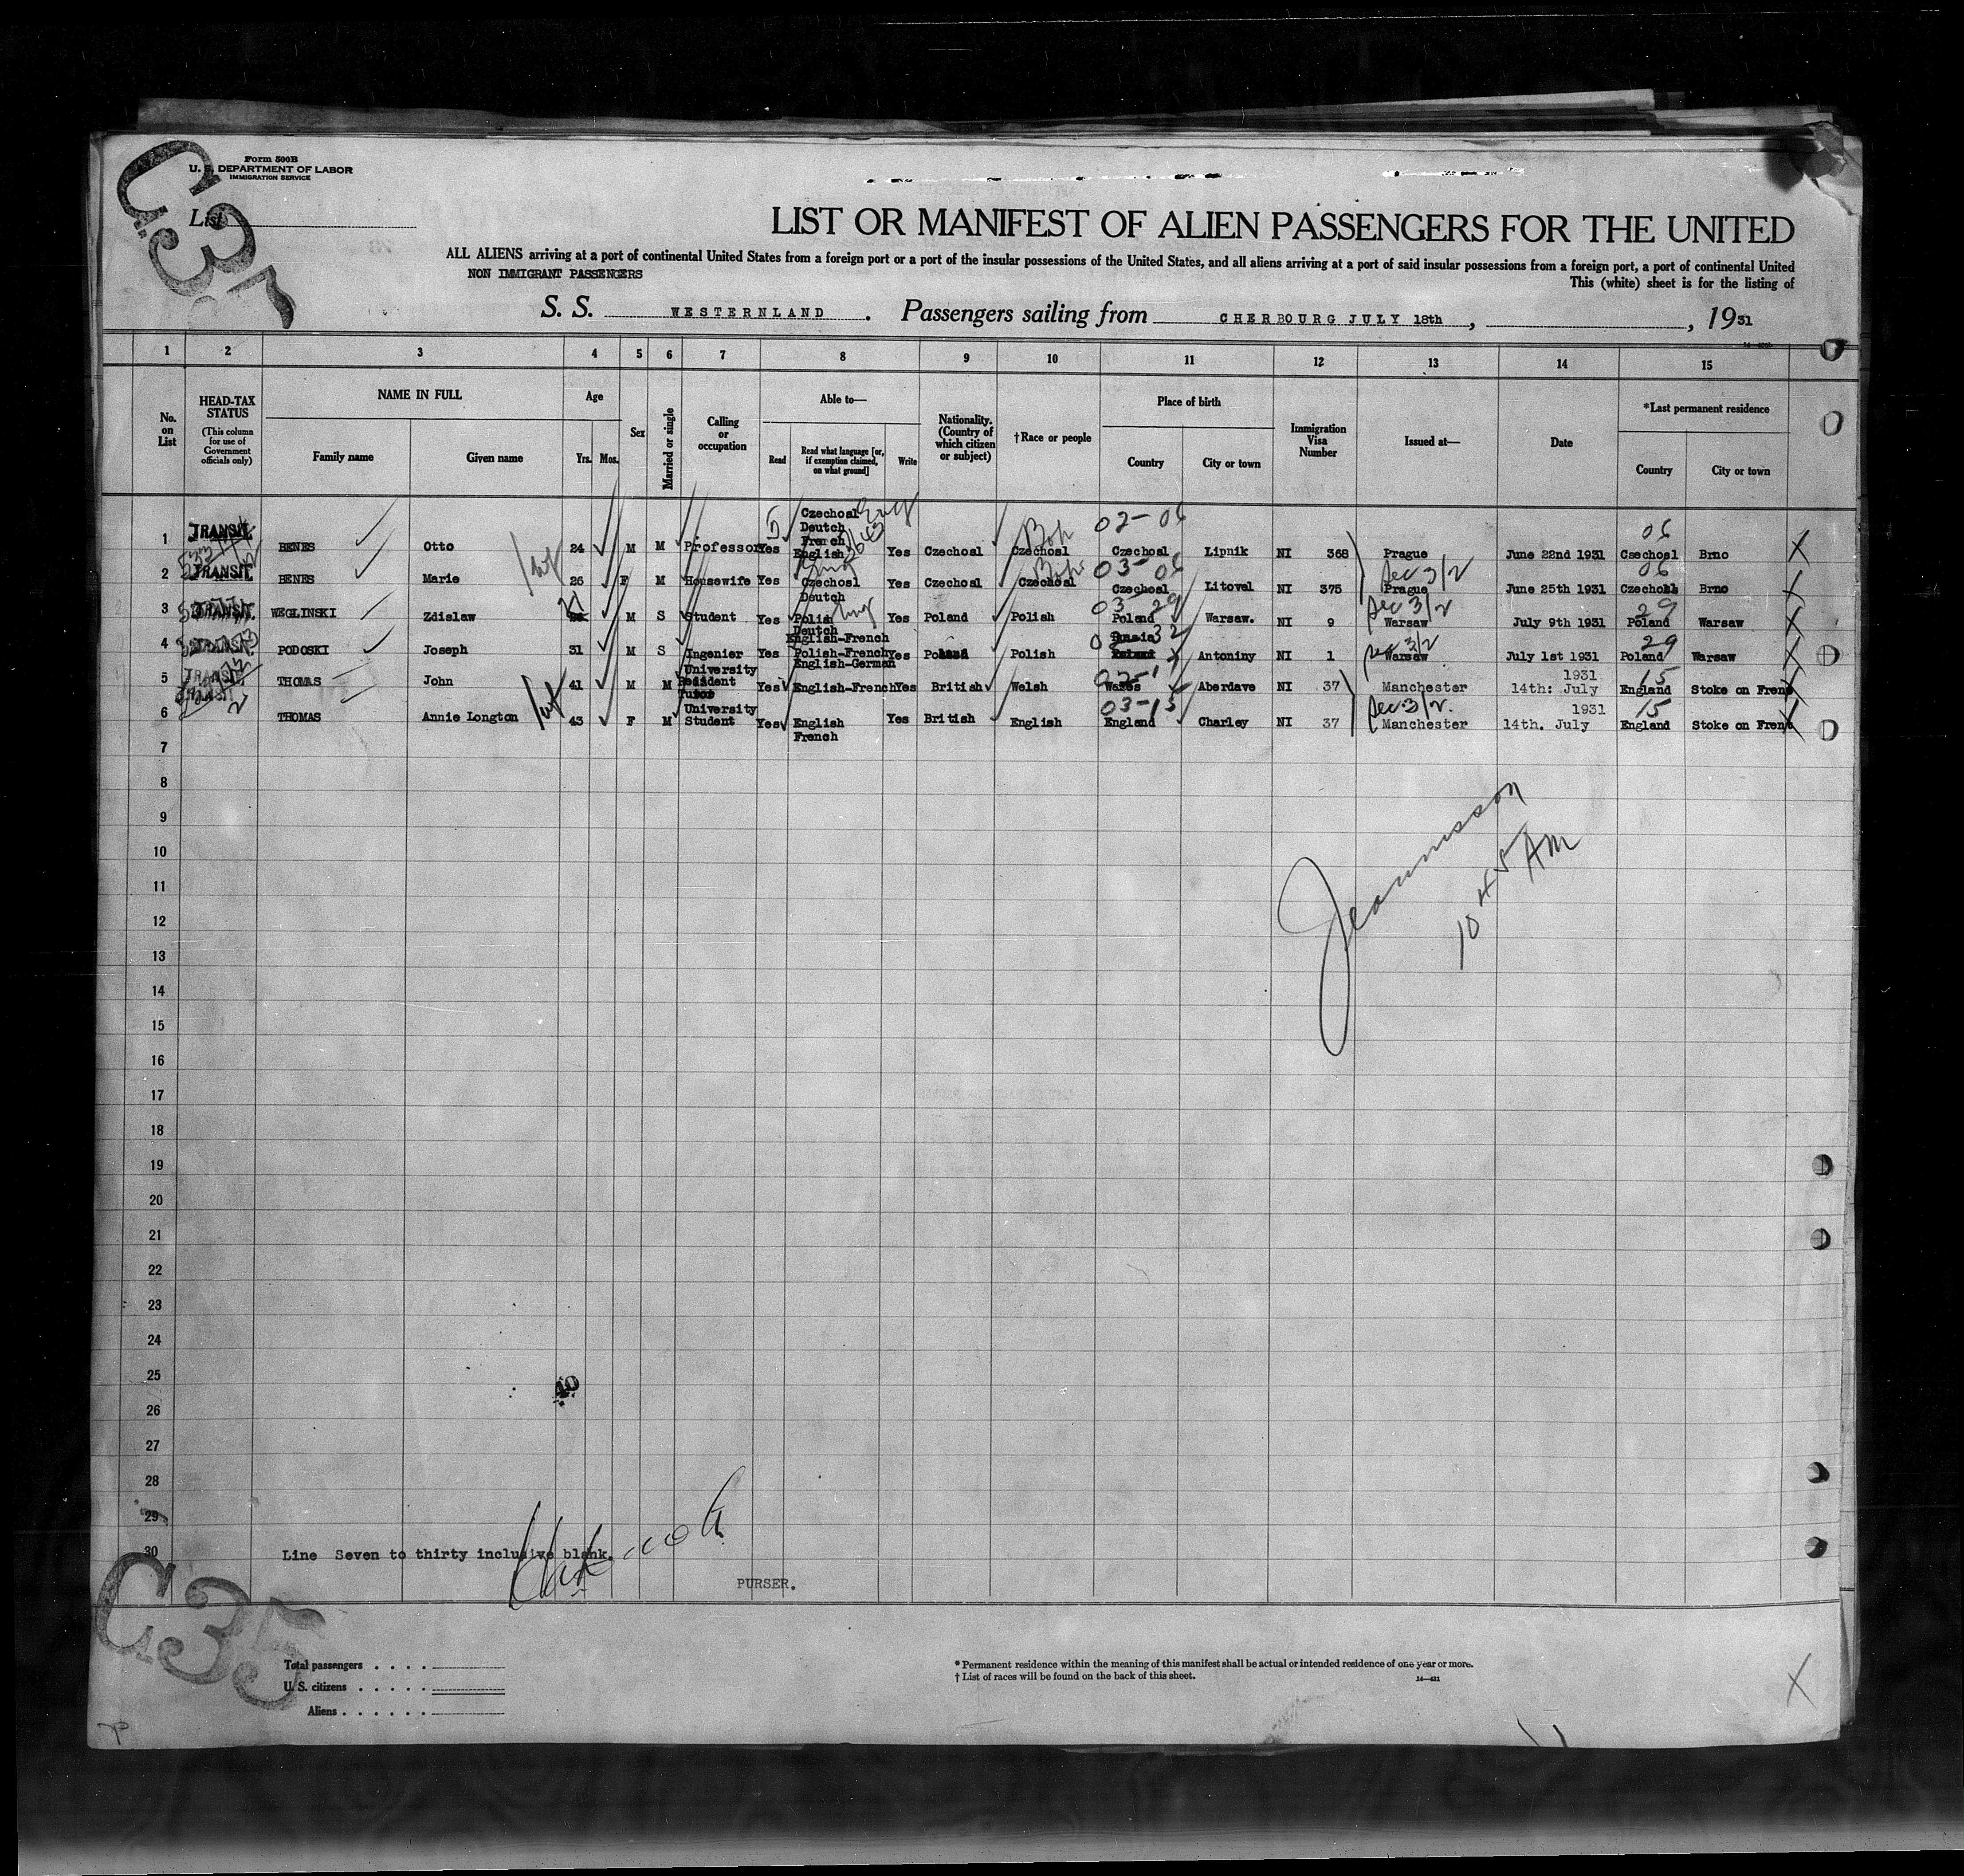 Form 500B
U. S. DEPARTMENT OF LABOR
IMMIGRATION SERVICE
C35
List
LIST OR MANIFEST OF ALIEN PASSENGERS FOR THE UNITED
ALL ALIENS arriving at a port of continental United States from a foreign port or a port of the insular possessions of the United States, and all aliens arriving at a port of said insular possessions from a foreign port, a port of continental United
NON IMMIGRANT PASSENGERS
This (white) sheet is for the listing of
S. S. WESTERNLAND. Passengers sailing from CHERBOURG JULY 18th, , 1931
1 2 3 4 5 6 7 8 9 10 11 12 13 14 15
No. on List
HEAD-TAX STATUS (This column for use of Government officials only)
NAME IN FULL
Family name Given name
Age
Yrs. Mos.
Sex
Married or single
Calling or occupation
Able to—
Read
Read what language [or, if exemption claimed, on what ground]
Write
Nationality. (Country of which citizen or subject)
†Race or people
Place of birth
Country City or town
Immigration Visa Number
Issued at—
Date
*Last permanent residence
Country City or town
1 TRANSIT BENES Otto 24 M M Professor Yes Czechosl Deutch French English Yes Czechosl Boh Czechosl 02-06 Czechosl Lipnik NI 368 Prague June 22nd 1931 06 Czechosl Brno X
2 TRANSIT BENES Marie 26 F M Housewife Yes Czechosl Deutch Yes Czechosl Boh Czechosl 03-06 Czechosl Litovel NI 375 Sec 3/2 Prague June 25th 1931 06 Czechosl Brno X
3 TRANSIT WEGLINSKI Zdislaw 21 M S Student Yes Polish Deutch Yes Poland Polish 03 29 Poland Warsaw. NI 9 Sec 3/2 Warsaw July 9th 1931 29 Poland Warsaw X
4 TRANSIT PODOSKI Joseph 31 M S Ingenier Yes English-French Polish-French English-German Yes Poland Polish Russia 32 Antoniny NI 1 Sec 3/2 Warsaw July 1st 1931 29 Poland Warsaw X
5 TRANSIT THOMAS John 41 M M University Resident Tutor Yes English-French Yes British Welsh Wales Aberdave NI 37 Manchester 14th: July 1931 15 England Stoke on Frent X
6 TRANSIT THOMAS Annie Longton 43 F M University Student Yes English French Yes British English 03-15 England Charley NI 37 Sec 3/2. Manchester 14th. July 1931 15 England Stoke on Frent X
7
8
9
10
11
12
13
14
15
16
17
18
19
20
21
22
23
24
25
26
27
28
29
30
10 45 AM
40
Line Seven to thirty inclusive blank.
PURSER.
C35
Total passengers . . . .
U. S. citizens . . . . .
Aliens . . . . . .
* Permanent residence within the meaning of this manifest shall be actual or intended residence of one year or more.
† List of races will be found on the back of this sheet.
X